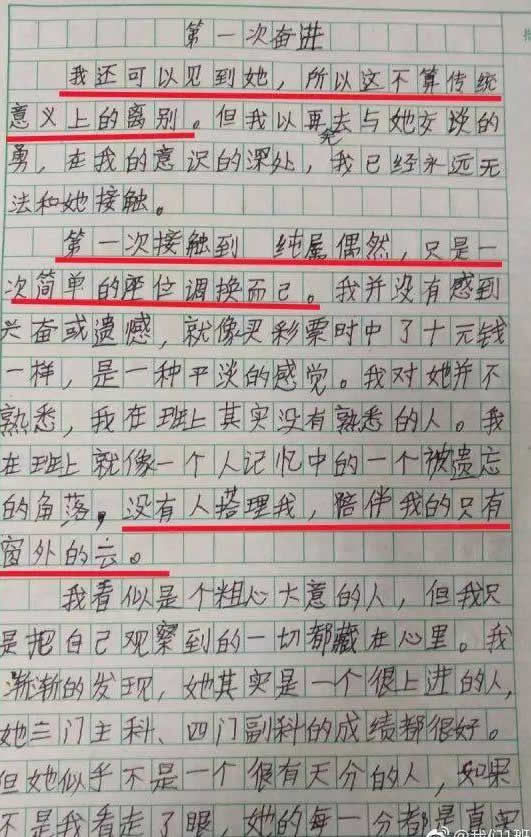 第一次奋进
我还可以见到她，所以这不算传统
意义上的离别。但我以再去与她交谈的
勇，在我的意识的深处，我已经永远无
法和她接触。
第一次接触到 纯属偶然，只是一
次简单的座位调换而已。我并没有感到
兴奋或遗憾，就像买彩票时中了十元钱
一样，是一种平淡的感觉。我对她并不
熟悉，我在班上其实没有熟悉的人。我
在班上就像一个人记忆中的一个被遗忘
的角落，没有人搭理我，陪伴我的只有
窗外的云。
我看似是个粗心大意的人，但我只
是把自己观察到的一切都藏在心里。我
渐渐的发现，她其实是一个很上进的人，
她三门主科、四门副科的成绩都很好。
但她似乎不是一个很有天分的人，如果
不是我看走了眼，她的每一分都是真实
@我们1班